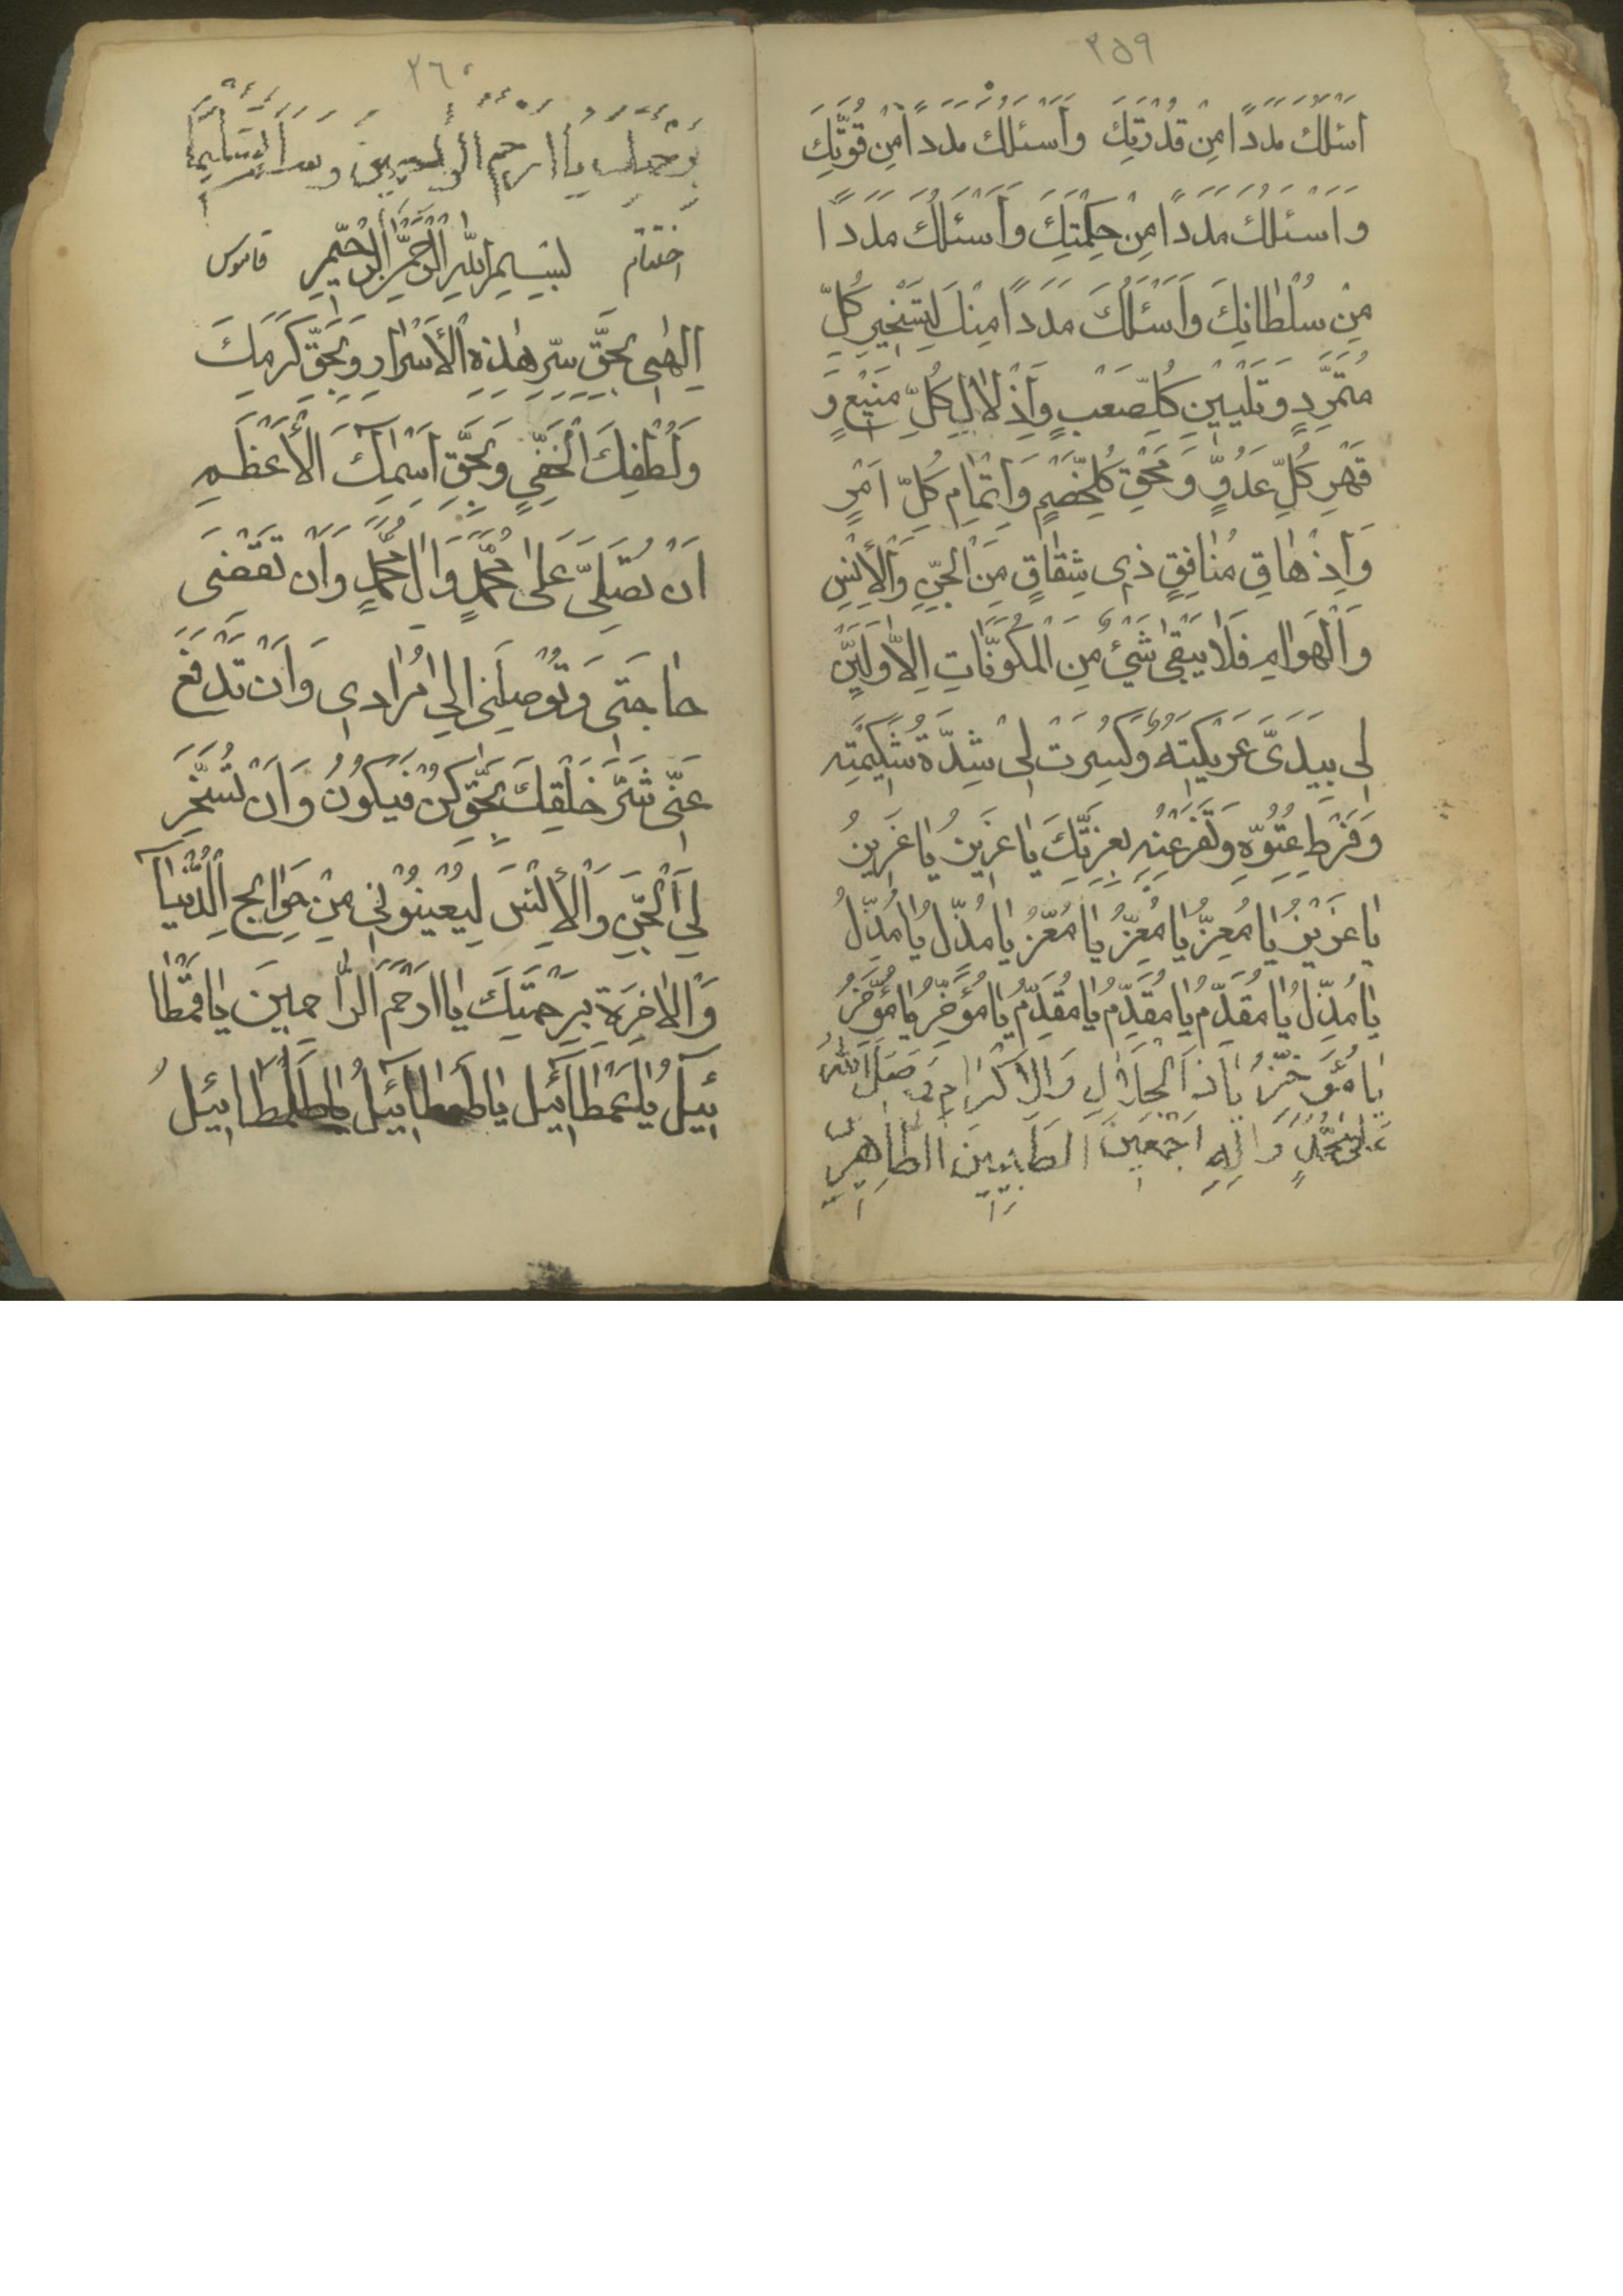 ٣٥٩
اَسْئَلُكَ مَدَدًا مِنْ قُدْرَتِكَ وَاَسْئَلُكَ مَدَدًا مِنْ قُوَّتِكَ
وَاَسْئَلُكَ مَدَدًا مِنْ حِكْمَتِكَ وَاَسْئَلُكَ مَدَدًا
مِنْ سُلْطَانِكَ وَاَسْئَلُكَ مَدَدًا مِنْكَ لِتَسْخِيرِ كُلِّ
مُتَمَرِّدٍ وَتَلْيِينِ كُلِّ صَعْبٍ وَاِذْلَالِ كُلِّ مَنِيْعٍ وَ
قَهْرِ كُلِّ عَدُوٍّ وَ مَحْقِ كُلِّ خَصْمٍ وَاِتْمَامِ كُلِّ اَمْرٍ
وَاِذْهَاقِ مُنَافِقٍ ذِى شِقَاقٍ مِنَ الْجِنِّ وَالْأِنْسِ
وَالْهَوَامِ فَلَا يَبْقَى شَىْءٌ مِنَ الْمُكَوَّنَاتِ اِلَّا وَلَيَّنَ
لِى بِيَدَىَّ عَرِيكَتَهُ وَكُسِرَتْ لِى شِدَّةُ شَكِيْمَتِه
وَفَرْطِ عُتُوِّهِ وَتَفَرْعُنِهِ بِعِزَّتِكَ يَا عَزِيزُ يَا عَزِيزُ
يَا عَزِيْزُ يَا مُعِزُّ يَا مُعِزُّ يَا مُعِزُّ يَا مُذِلُّ يَا مُذِلُّ
يَا مُذِلُّ يَا مُقَدِّمُ يَا مُقَدِّمُ يَا مُقَدِّمُ يَا مُؤَخِّرُ يَا مُؤَخِّرُ
يَا مُؤَخِّرُ يَا ذَا الْجَلَالِ وَالْاِكْرَامِ وَ صَلَّى اللهُ
عَلَى مُحَمَّدٍ وَ الِهِ اَجْمَعِينَ الطَّيِّبِينَ الطَّاهِرِينَ
٣٦٠
بِرَحْمَتِكَ يَا اَرْحَمَ الرَّاحِمِينَ وَ سَلَّمَ تَسْلِيمًا
اختتام بِسْمِ اللهِ الرَّحْمٰنِ الرَّحِيْمِ قاموس
اِلٰهِى بِحَقِّ سِرِّ هٰذِهِ الْأَسْرَارِ وَبِحَقِّ كَرَمِكَ
وَلُطْفِكَ الْخَفِىِّ وَبِحَقِّ اَسْمَآئِكَ الْأَعْظَمِ
اَنْ تُصَلِّىَ عَلَى مُحَمَّدٍ وَالِ مُحَمَّدٍ وَاَنْ تَقْضِىَ
حَاجَتِى وَتُوْصِلَنِى اِلَى مُرَادِى وَاَنْ تَدْفَعَ
عَنِّى شَرَّ خَلْقِكَ بِحَقِّ كُنْ فَيَكُوْنُ وَاَنْ تُسَخِّرَ
لِىَ الْجِنَّ وَالْأِنْسَ لِيُعِيْنُوْنِى مِنْ حَوَايِجِ الدُّنْيَا
وَالْاخِرَةِ بِرَحْمَتِكَ يَا اَرْحَمَ الرَّاحِمِينَ يَا قَمْطَا
ئِيلُ يَا عَمْطَآئِيلُ يَا طَمطَائِيلُ يَا طَلَمْطَائِيلُ